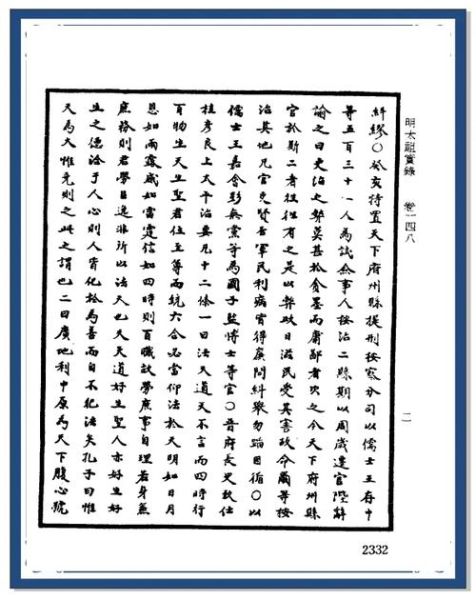 明太祖實錄 卷一四八
糾繆○癸亥特置天下府州縣提刑按察分司以儒士王存中
等五百三十一人為試僉事人按治二縣期以周歲遣官陛辭
諭之曰吏治之弊莫甚於貪墨而庸鄙者次之今天下府州縣
官於斯二者往往有之是以弊政日滋民受其害故命爾等按
治其地凡官吏賢否軍民利病皆得廉問糾舉勿蹈因循○以
儒士王嘉會彭無黨等為國子監博士等官○晉府長史致仕
桂彥良上太平治要凡十二條一曰法天道天不言而四時行
百物生天生聖君位至尊而統六合必當仰法於天明如日月
恩如雨露威如雷霆信如四時則百職效勞庶事自理若身兼
庶務則君勞臣逸非所以法天也又天道好生聖人亦好生好
生之德洽于人心則人皆化於為善而自不犯法矣孔子曰惟
天為大惟堯則之此之謂也二曰廣地利中原為天下腹心號
二
2332